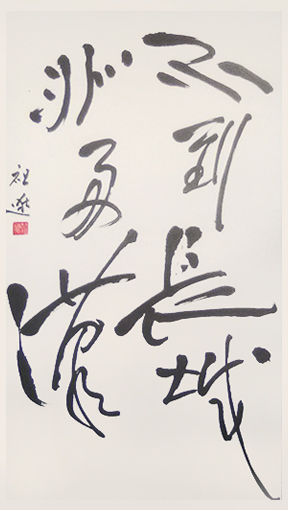 不到長城
非好漢
祖